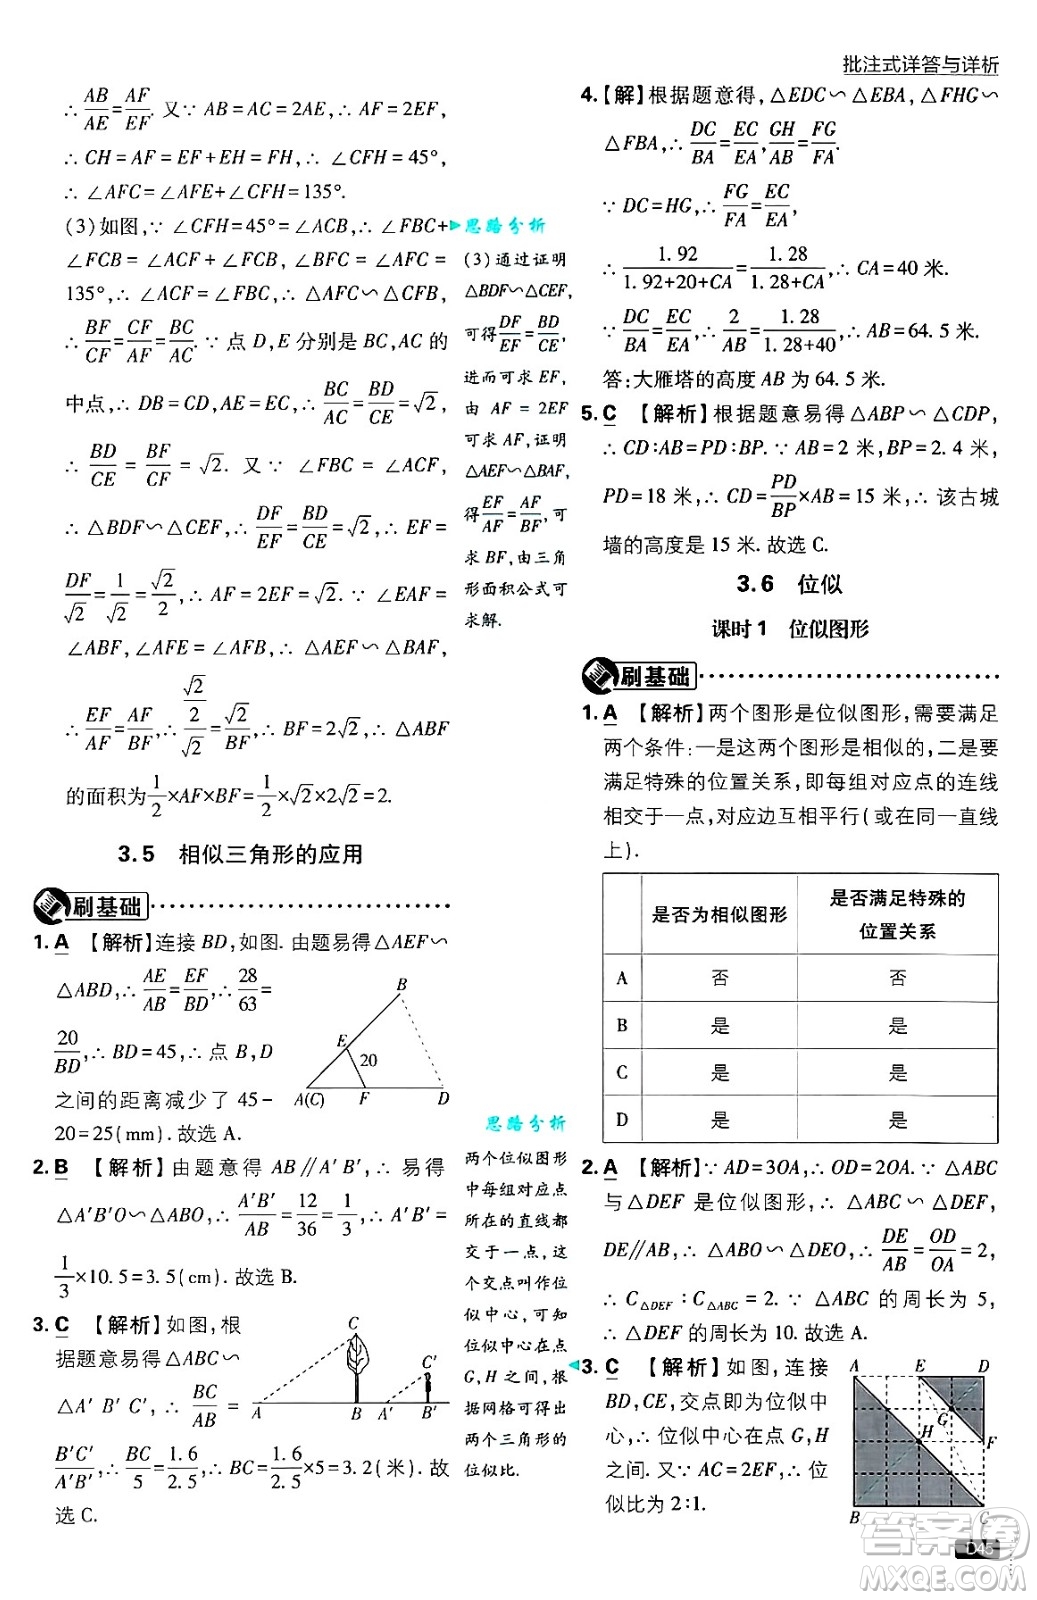 批注式详答与详析
∴ AB/AE=AF/EF. 又∵ AB=AC=2AE,∴ AF=2EF,
∴ CH=AF=EF+EH=FH,∴ ∠CFH=45°,
∴ ∠AFC=∠AFE+∠CFH=135°.
(3)如图,∵ ∠CFH=45°=∠ACB,∴ ∠FBC+
∠FCB=∠ACF+∠FCB=45°. 又∵ ∠BFC=∠AFC=
135°,∴ ∠ACF=∠FBC,∴ △AFC∽△CFB,
∴ BF/CF=CF/AF=BC/AC. ∵ 点 D,E 分别是 BC,AC 的
中点,∴ DB=CD,AE=EC,∴ BC/AC=BD/CE=√2,
∴ BD/CE=BF/CF=√2. 又∵ ∠FBC=∠ACF,
∴ △BDF∽△CEF,∴ DF/EF=BD/CE=√2,∴ EF=
DF/√2=1/√2=√2/2,∴ AF=2EF=√2. ∵ ∠EAF=
∠ABF,∠AFE=∠AFB,∴ △AEF∽△BAF,
∴ EF/AF=AF/BF,∴ (√2/2)/√2=√2/BF,∴ BF=2√2,∴ △ABF
的面积为1/2×AF×BF=1/2×√2×2√2=2.
思路分析
(3)通过证明
△BDF∽△CEF,
可得DF/EF=BD/CE,
进而可求 EF,
由 AF=2EF
可求 AF,证明
△AEF∽△BAF,
得EF/AF=AF/BF,可
求 BF,由三角
形面积公式可
求解.
3.5 相似三角形的应用
刷基础
1. A 【解析】连接 BD,如图. 由题易得△AEF∽
△ABD,∴ AE/AB=EF/BD=28/63=
20/BD,∴ BD=45,∴ 点 B,D
之间的距离减少了 45-
20=25(mm). 故选 A.
B
E
20
A(C) F D
2. B 【解析】由题意得 AB∥A′B′,∴ 易得
△A′B′O∽△ABO,∴ A′B′/AB=12/36=1/3,∴ A′B′=
1/3×10.5=3.5(cm). 故选 B.
3. C 【解析】如图,根
据题意易得△ABC∽
△A′B′C′,∴ BC/AB=
B′C′/A′B′,∴ BC/5=1.6/2.5,∴ BC=1.6/2.5×5=3.2(米). 故
选 C.
C
C′
A B A′ B′
思路分析
两个位似图形
中每组对应点
所在的直线都
交于一点,这
个交点叫作位
似中心,可知
位似中心在点
G,H 之间,根
据网格可得出
两个三角形的
位似比.
4.【解】根据题意得,△EDC∽△EBA,△FHG∽
△FBA,∴ DC/BA=EC/EA,GH/AB=FG/FA.
∵ DC=HG,∴ FG/FA=EC/EA,
∴ 1.92/(1.92+20+CA)=1.28/(1.28+CA),∴ CA=40 米.
∵ DC/BA=EC/EA,∴ 2/AB=1.28/(1.28+40),∴ AB=64.5 米.
答:大雁塔的高度 AB 为 64.5 米.
5. C 【解析】根据题意易得△ABP∽△CDP,
∴ CD∶AB=PD∶BP. ∵ AB=2 米,BP=2.4 米,
PD=18 米,∴ CD=PD/BP×AB=15 米,∴ 该古城
墙的高度是 15 米. 故选 C.
3.6 位似
课时1 位似图形
刷基础
1. A 【解析】两个图形是位似图形,需要满足
两个条件:一是这两个图形是相似的,二是要
满足特殊的位置关系,即每组对应点的连线
相交于一点,对应边互相平行(或在同一直线
上).
是否为相似图形 是否满足特殊的
位置关系
A 否 否
B 是 是
C 是 是
D 是 是
2. A 【解析】∵ AD=3OA,∴ OD=2OA. ∵ △ABC
与△DEF 是位似图形,∴ △ABC∽△DEF,
DE∥AB,∴ △ABO∽△DEO,∴ DE/AB=OD/OA=2,
∴ C△DEF∶C△ABC=2. ∵ △ABC 的周长为 5,
∴ △DEF 的周长为 10. 故选 A.
3. C 【解析】如图,连接
BD,CE,交点即为位似中
心,∴ 位似中心在点 G,H
之间. 又∵ AC=2EF,∴ 位
似比为 2∶1.
A E D
G
H F
B C
答案圈
D45
MXQE.COM